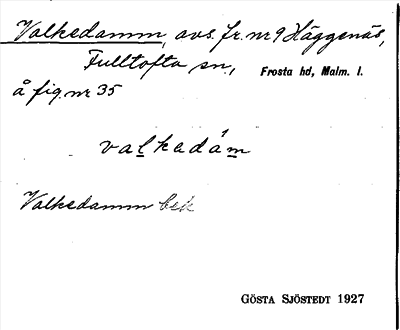 Valkedamm, avs. fr. nr 9 Häggenäs,
Fulltofta sn., Frosta hd, Malm. l.
å fig. nr 35
valkedám
Valkedamm bek
GÖSTA SJÖSTEDT 1927